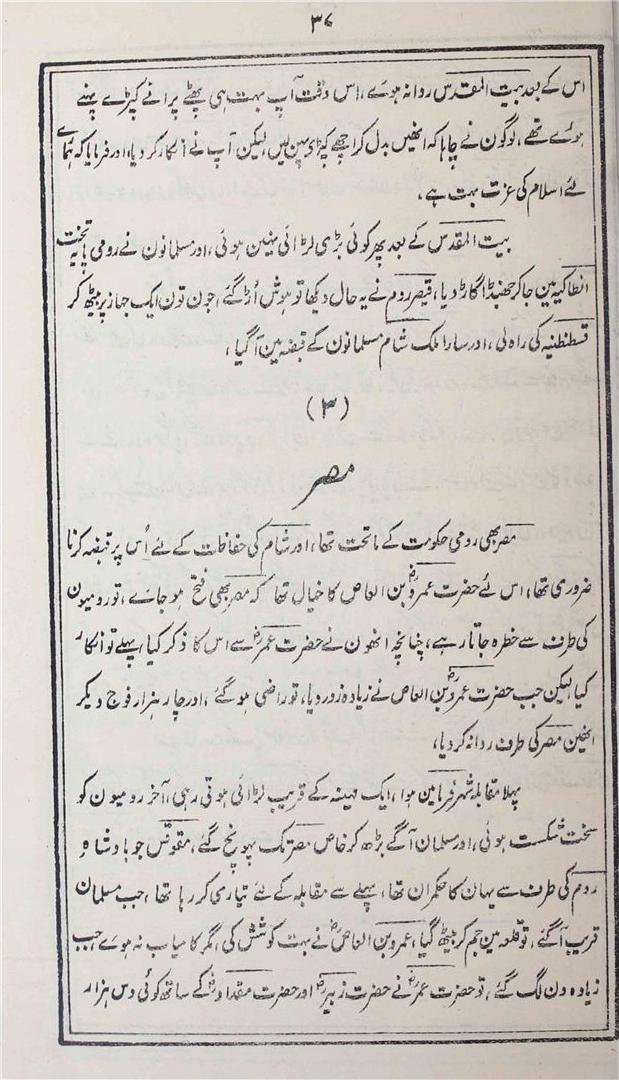 ۳۷
اس کے بعد بیت المقدس روانہ ہوے، اس وقت آپ بہت ہی پھٹے پرانے کپڑے پہنے
ہوئے تھے، لوگون نے چاہا کہ انھین بدل کر اچھے کپڑے پہن لین لیکن آپ نے انکار کر دیا، اور فرمایا کہ ہمارے
لئے اسلام کی عزت بہت ہے،
بیت المقدس کے بعد پھر کوئی بڑی لڑائی نہین ہوئی، اور مسلمانون نے رومی پایہ تخت
انطاکیہ مین جا کر جھنڈا گاڑ دیا، قیصر روم نے یہ حال دیکھا تو ہوش اُڑ گئے، جون تون ایک جہاز پر بیٹھ کر
قسطنطنیہ کی راہ لی، اور سارا ملک شام مسلمانون کے قبضہ مین آگیا،
(۳)
مصر
مصر بھی رومی حکومت کے ماتحت تھا، اور شام کی حفاظت کے لئے اُس پر قبضہ کرنا
ضروری تھا، اس لئے حضرت عمروؓ بن العاص کا خیال تھا کہ مصر بھی فتح ہو جاے، تو رومیون
کی طرف سے خطرہ جاتا رہے، چنانچہ انھون نے حضرت عمرؓ سے اس کا ذکر کیا، پہلے تو انکار
کیا لیکن جب حضرت عمروؓ بن العاص نے زیادہ زور دیا، تو راضی ہو گئے، اور چار ہزار فوج دیکر
انھین مصر کی طرف روانہ کر دیا،
پہلا مقابلہ شہر فرما مین ہوا، ایک مہینہ کے قریب لڑائی ہوتی رہی، آخر رومیون کو
سخت شکست ہوئی، اور مسلمان آگے بڑھ کر خاص مصر تک پہونچ گئے، مقوقس جو بادشاہِ
روم کی طرف سے یہان کا حکمران تھا، پہلے سے مقابلہ کے لئے تیاری کر رہا تھا، جب مسلمان
قریب آگئے، تو قلعہ مین جم کر بیٹھ گیا، عمرو بن العاصؓ نے بہت کوشش کی، مگر کامیاب نہ ہوے، جب
زیادہ دن لگ گئے، تو حضرت عمرؓ نے حضرت زبیرؓ اور حضرت مقدادؓ کے ساتھ کوئی دس ہزار